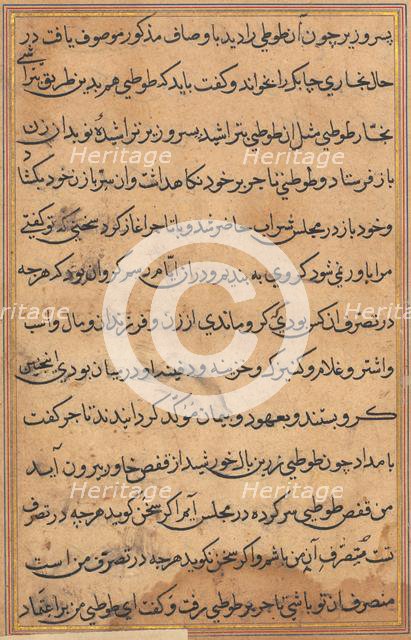 پسر وزیر چون آن طوطی را دید باوصاف مذکور موصوف یافت در
حال نجاری چابک را بخواند و گفت باید که طوطی هم بدین طریق بتراشی
نجار طوطی مثل آن طوطی بتراشید پسر وزیر تراشیده نو بدان زن
باز فرستاد و طوطی تاجر بر خود نکاهداشت وان سر باز نزد خود
وخود باز در مجلس شراب حاضر شد و با تاجر اغاز کرد سخنی که تو گفتی
مرا باور نمی شود گروی به بندیم ودران ایام رسم گروان بود که هرچه
در تصرف آن کس بودی گرو ماندی از زن و فرزند و مال و اسب
واشتر و غلام و کنیزک و خزینه ودفینه او در بیان بودی اینچنین
گرو بستند و بعهود و پیمان موکد گردانیدند تاجر گفت
بامداد چون طوطی زرین بال خورشید از قفص خاور بیرون آید
من قفص طوطی سر کرده در مجلس آرم اکر سخن کوید هرچه در تصرف
تست متصرف آن من باشم و اکر سخن نکوید هرچه در تصرف من است
متصرف ان تو باشی تاجر بر طوطی رفت و گفت ای طوطی من بر اعتماد
Heritage Heritage
Heritage Heritage
Heritage Heritage
Heritage Heritage